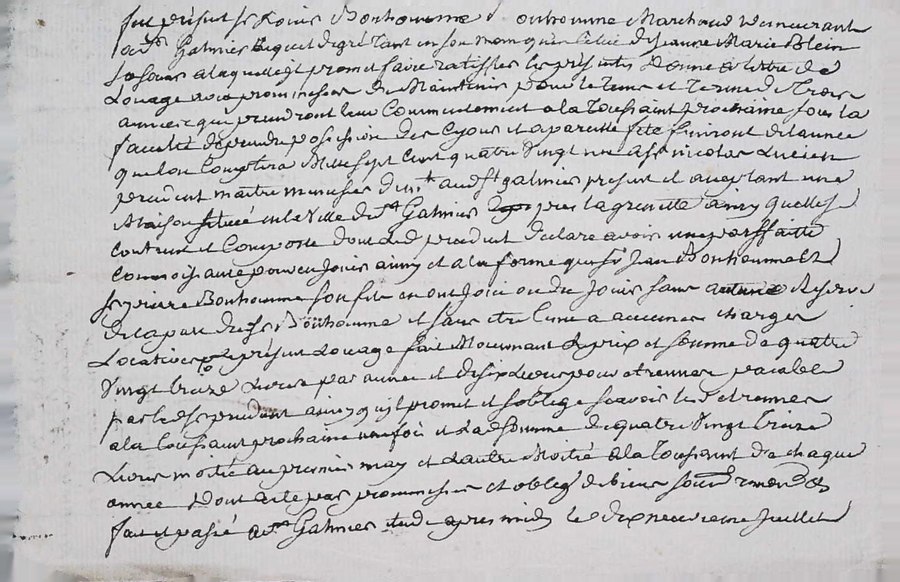 fut présent sr Louis Bonhomme Bonhomme Marchand demeurant
a st Galmier lequel de gré tant en son nom qu'en celui de Jeanne Marie Blein
sa soeur a laquelle il promet faire ratiffier les présentes donne a titre de
Louage avec promesses de Maintenir pour le tems et terme de trois
années qui prendront leur Commencement a la toussaint prochaine sous la
faculté de prendre possession des Cejour et a pareille fête finiront de l'année
que l'on Comptera Mille sept Cent quatre Vingt une a sr nicolas Lucien
prudent maître menuisier dmt aud st galmier présent et acceptant une
Maison située en la Ville de st Galmier près la grenette ainsy quelle se
Contient et Compose dont led prudent declare avoir une parffaitte
Connoissance pour en Jouir ainsy et a la forme que sr Jean Bonhomme et
sr pierre Bonhomme son fils en ont Joui ou du Jouir sans aucune Reserve
de la part dud sr Bonhomme et sans etre tenu a aucunes charges
Locatives le présent Louage fait Moyennant le prix et somme de quatre
Vingt treize Livres par année et dix Livres pour etrennes payables
par led sr prudent ainsy qu'il promet et s'oblige scavoir les etrennes
a la toussaint prochaine une fois et lad somme de quatre Vingt treize
Livres moitié au premier may et l'autre Moitié a la toussaint de chaque
année Dont acte par promesses et oblig de biens soum renon
fait et passé a st Galmier etude après midy le dix neuvieme Juillet